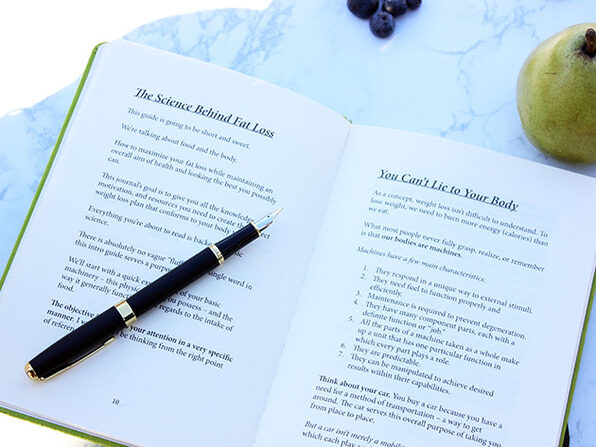 The Science Behind Fat Loss
This guide is going to be short and sweet.
We're talking about food and the body.
How to maximize your fat loss while maintaining an
overall aim of health and looking the best you possibly
can.
This journal's goal is to give you all the knowledge,
motivation, and resources you need to create the
weight loss plan that conforms to your body
science.
Everything you're about to read is backed
There is absolutely no vague "fluff"
single word in
this intro guide serves a purpose
We'll start with a quick
of your basic
machinery – this physical
you possess – and the
way it generally functions
regards to the intake of
food.
The objective
your attention in a very specific
manner. I
be thinking from the right
of reference
10
You Can't Lie to Your Body
As a concept, weight loss isn't difficult to understand. To
lose weight, we need to burn more energy (calories) than
we eat.
What most people never fully grasp, realize, or remember
is that our bodies are machines.
Machines have a few main characteristics:
1. They respond in a unique way to external stimuli.
2. They need fuel to function properly and
efficiently.
3. Maintenance is required to prevent degeneration.
4. They have many component parts, each with a
definite function or "job."
5. All the parts of a machine taken as a whole make
up a unit that has one particular function in
which every part plays a role.
6. They are predictable.
7. They can be manipulated to achieve desired
results within their capabilities.
Think about your car. You buy a car because you have a
need for a method of transportation – a way to get
around. The car serves this overall purpose of taking you
from place to place.
But a car isn't merely a
which each play a